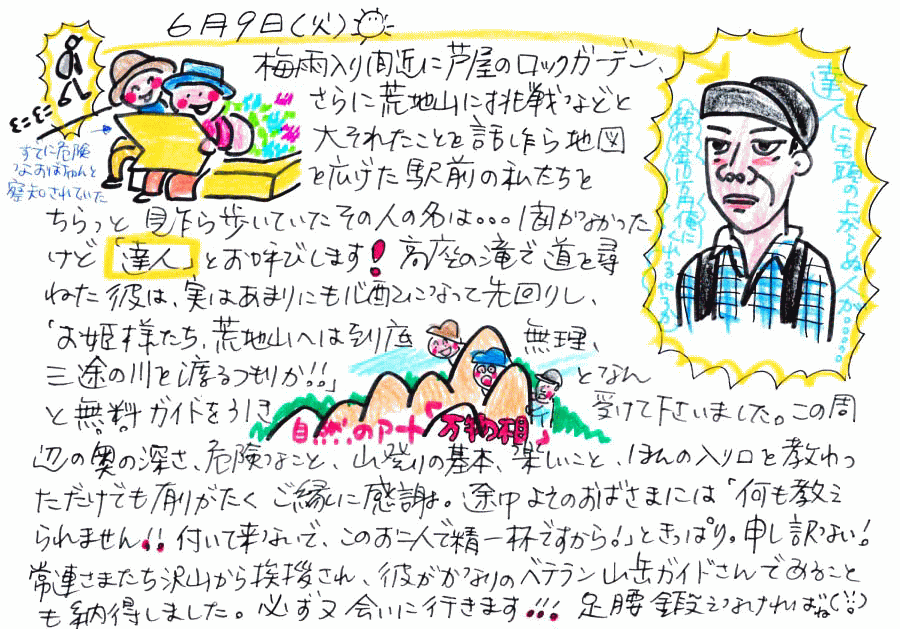 6月9日(火)
梅雨入り間近に芦屋のロックガーデン、
さらに荒地山に挑戦などと
大それたことを話し乍ら地図
を広げた駅前の私たちを
ちらっと見乍ら歩いていたその人の名は…聞かなかった
けど「達人」とお呼びします!高座の滝で道を尋
ねた彼は、実はあまりにも心配になって先回りし、
「お姫様たち、荒地山へは到底無理、
三途の川を渡るつもりか!!」となん
と無料ガイドを引き受けて下さいました。この周
辺の奥の深さ、危険なこと、山登りの基本、楽しいこと、ほんの入り口を教わっ
ただけでも有りがたくご縁に感謝。途中よそのおばさまには「何も教え
られません!!付いて来ないで、このお二人で精一杯ですから!」ときっぱり。申し訳ない!
常連さまたち沢山から挨拶され、彼がかなりのベテラン山岳ガイドさんであること
も納得しました。必ず又会いに行きます!!!足腰鍛えなければね(!!)
すでに危険
なおばちゃんと
察知されていた
自然のアート「万物相」
達人にも頭の上がらぬ人が……
給付金10万円俺に
くれるやろか